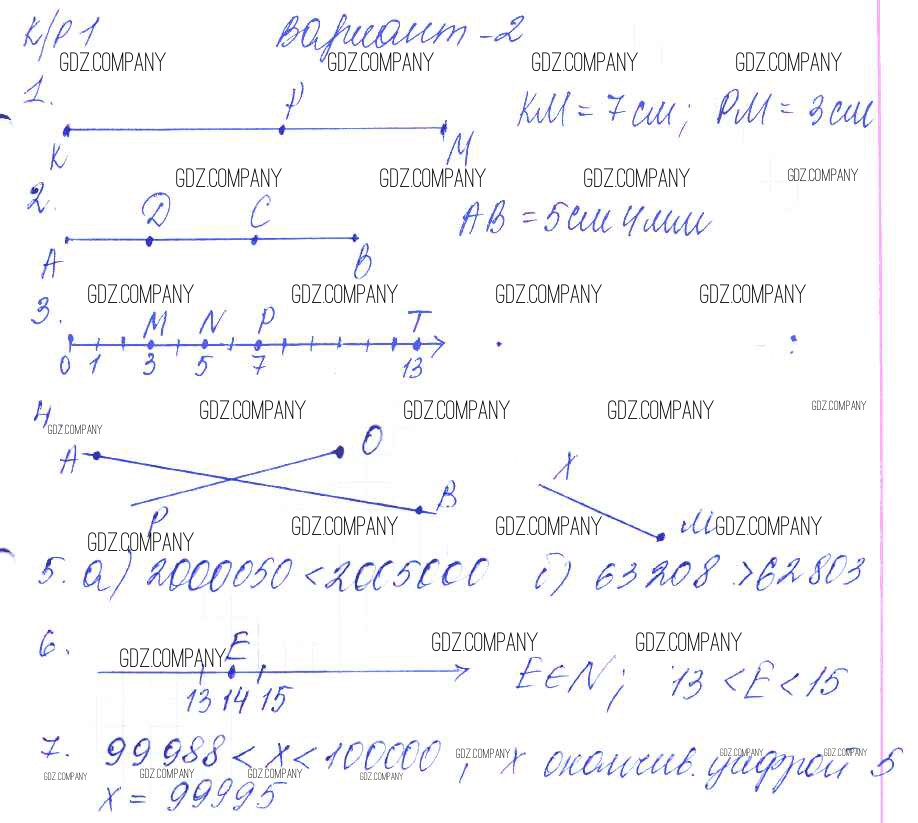 К/Р 1 Вариант - 2
GDZ.COMPANY GDZ.COMPANY GDZ.COMPANY GDZ.COMPANY
1. P КМ = 7 см; РМ = 3 см
K M
GDZ.COMPANY GDZ.COMPANY GDZ.COMPANY GDZ.COMPANY
2. D C АВ = 5 см 4 мм
A B
GDZ.COMPANY GDZ.COMPANY GDZ.COMPANY GDZ.COMPANY
3. M N P T
0 1 3 5 7 13
GDZ.COMPANY GDZ.COMPANY GDZ.COMPANY GDZ.COMPANY
4
GDZ.COMPANY
A O X
P B M
GDZ.COMPANY GDZ.COMPANY GDZ.COMPANY GDZ.COMPANY
5. а) 2000050 < 2005000 б) 63208 > 62803
6. E
GDZ.COMPANY GDZ.COMPANY GDZ.COMPANY
13 14 15 E∈N; 13 < E < 15
7. 99988 < x < 100000, x оканчив. цифрой 5
GDZ.COMPANY GDZ.COMPANY GDZ.COMPANY
GDZ.COMPANY GDZ.COMPANY GDZ.COMPANY GDZ.COMPANY
x = 99995